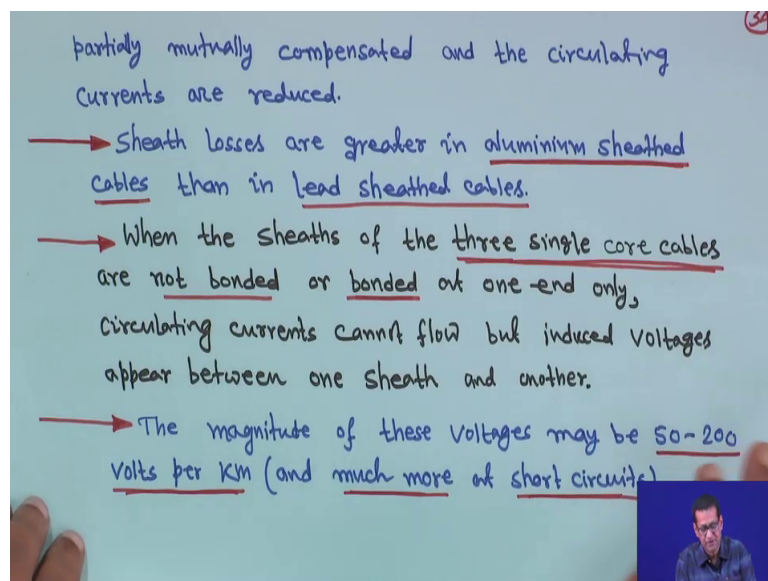 partially mutually compensated and the circulating
currents are reduced.
Sheath losses are greater in aluminium sheathed
cables than in lead sheathed cables.
When the sheaths of the three single core cables
are not bonded or bonded at one end only,
circulating currents cannot flow but induced voltages
appear between one sheath and another.
The magnitude of these voltages may be 50-200
volts per KM (and much more at short circuits)